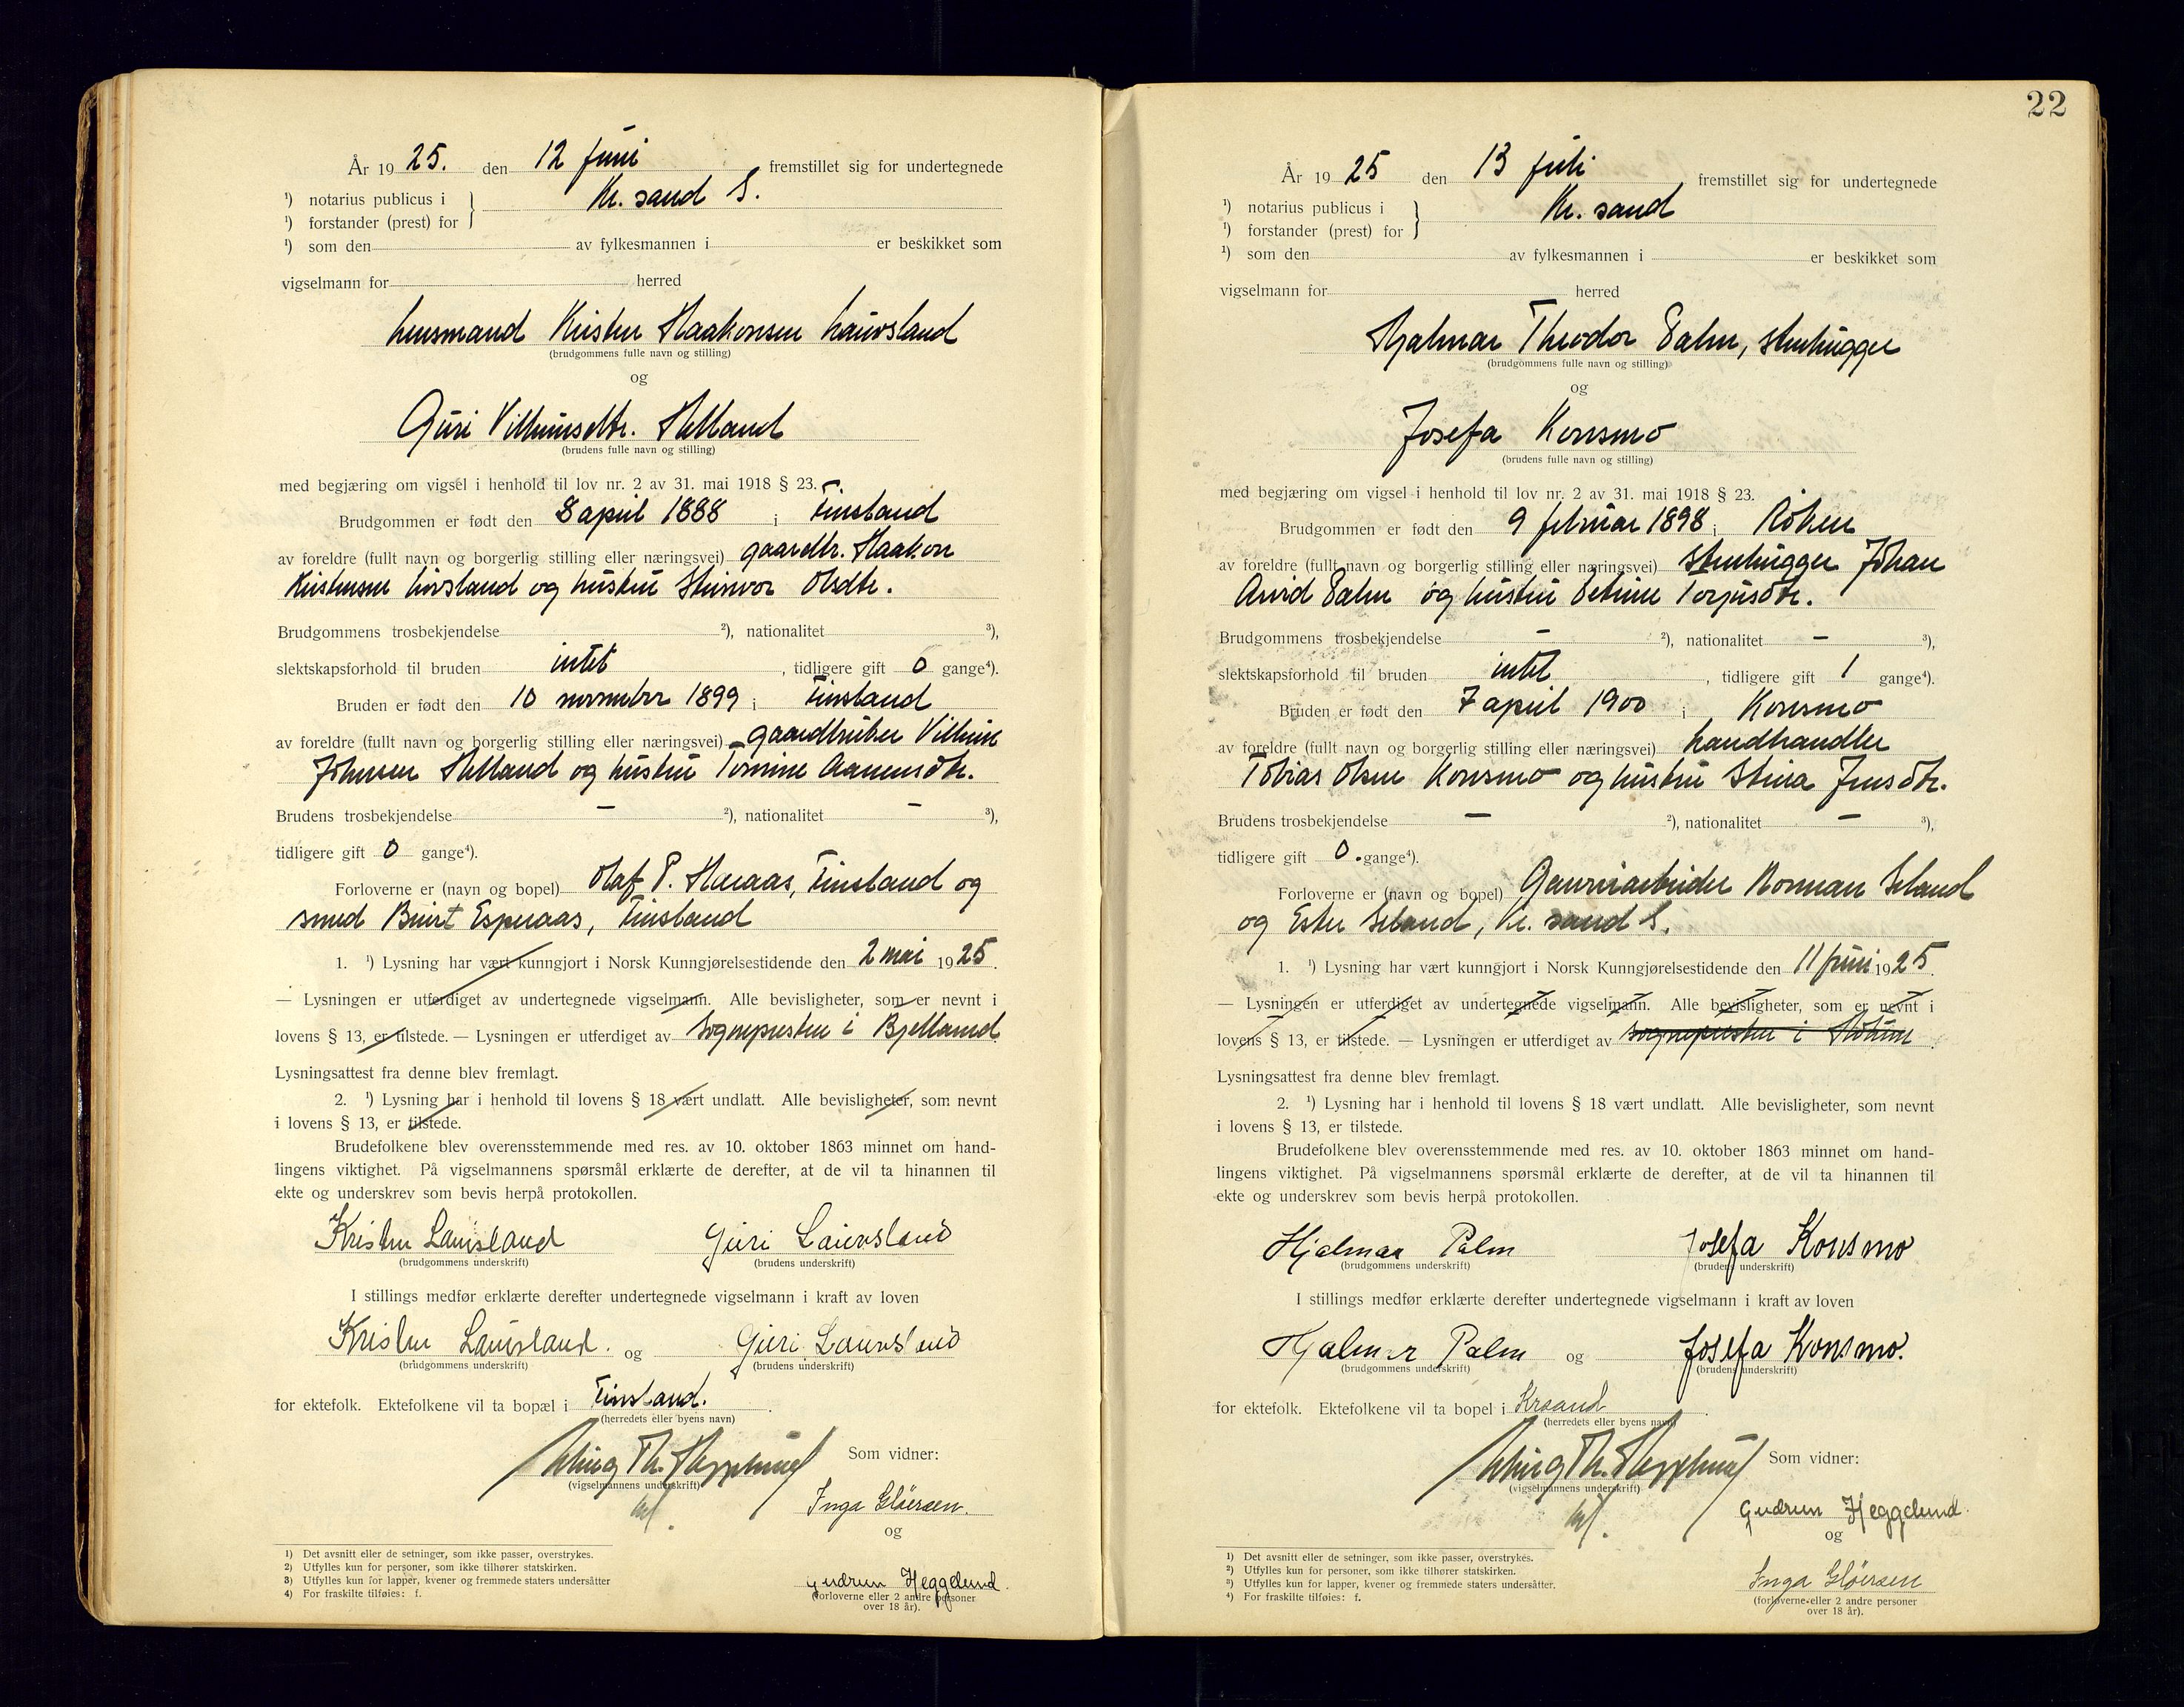 År 1925. den 12 juni fremstillet sig for undertegnede
¹) notarius publicus i } Kr. sand S.
¹) forstander (prest) for
¹) som den av fylkesmannen i er beskikket som
vigselmann for herred
lensmand Kristen Haakonsen Lauvsland
(brudgommens fulle navn og stilling)
og
Guri Vilhumsdtr. Helland
(brudens fulle navn og stilling)
med begjæring om vigsel i henhold til lov nr. 2 av 31. mai 1918 § 23.
Brudgommen er født den 8 april 1888 i Finsland
av foreldre (fullt navn og borgerlig stilling eller næringsvei) gaardbr. Haakon
Kristensen Lovsland og hustru Steinvor Olsdtr.
Brudgommens trosbekjendelse ²), nationalitet ³),
slektskapsforhold til bruden intet, tidligere gift 0 gange⁴).
Bruden er født den 10 november 1899 i Finsland
av foreldre (fullt navn og borgerlig stilling eller næringsvei) gaardbruker Vilhum
Johnsen Helland og hustru Tomine Aanensdtr.
Brudens trosbekjendelse – ²), nationalitet – ³),
tidligere gift 0 gange⁴).
Forloverne er (navn og bopel) Olaf P. Haraas, Finsland og
smed Berint Esperaas, Finsland
1. ¹) Lysning har vært kunngjort i Norsk Kunngjørelsestidende den 2 mai 1925.
— Lysningen er utferdiget av undertegnede vigselmann. Alle bevisligheter, som er nevnt i
lovens § 13, er tilstede. — Lysningen er utferdiget av sognepresten i Bjelland
Lysningsattest fra denne blev fremlagt.
2. ¹) Lysning har i henhold til lovens § 18 vært undlatt. Alle bevisligheter, som nevnt
i lovens § 13, er tilstede.
Brudefolkene blev overensstemmende med res. av 10. oktober 1863 minnet om hand-
lingens viktighet. På vigselmannens spørsmål erklærte de derefter, at de vil ta hinannen til
ekte og underskrev som bevis herpå protokollen.
Kristen Lauvsland Guri Lauvsland
(brudgommens underskrift) (brudens underskrift)
I stillings medfør erklærte derefter undertegnede vigselmann i kraft av loven
Kristen Lauvsland. og Guri Lauvsland
(brudgommens underskrift) (brudens underskrift)
for ektefolk. Ektefolkene vil ta bopæl i Finsland.
(herredets eller byens navn)
Th. Heggelund Som vidner:
(vigselmannens underskrift)
Inga Gløersen.
og
Gudrun Heggelund.
(forloverne eller 2 andre personer
over 18 år).
1) Det avsnitt eller de setninger, som ikke passer, overstrykes.
2) Utfylles kun for personer, som ikke tilhører statskirken.
3) Utfylles kun for lapper, kvener og fremmede staters undersåtter
4) For fraskilte tilføies: f.
22
År 1925 den 13 juli fremstillet sig for undertegnede
¹) notarius publicus i } Kr. sand
¹) forstander (prest) for
¹) som den av fylkesmannen i er beskikket som
vigselmann for herred
Hjalmar Theodor Palm, stenhugger
(brudgommens fulle navn og stilling)
og
Josefa Konsmo
(brudens fulle navn og stilling)
med begjæring om vigsel i henhold til lov nr. 2 av 31. mai 1918 § 23.
Brudgommen er født den 9 februar 1898 i Röken
av foreldre (fullt navn og borgerlig stilling eller næringsvei) Stenhugger Johan
Arvid Palm og hustru Petrine Torjusdtr.
Brudgommens trosbekjendelse – ²), nationalitet – ³),
slektskapsforhold til bruden intet, tidligere gift 1 gange⁴).
Bruden er født den 7 april 1900 i Konsmo
av foreldre (fullt navn og borgerlig stilling eller næringsvei) Landhandler
Tobias Olsen Konsmo og hustru Stina Jensdtr.
Brudens trosbekjendelse – ²), nationalitet – ³),
tidligere gift 0. gange⁴).
Forloverne er (navn og bopel) Garveriarbeider Norman Seland
og Ester Seland, Kr. sand S.
1. ¹) Lysning har vært kunngjort i Norsk Kunngjørelsestidende den 11 juni 1925.
— Lysningen er utferdiget av undertegnede vigselmann. Alle bevisligheter, som er nevnt i
lovens § 13, er tilstede. — Lysningen er utferdiget av sognepresten i
Lysningsattest fra denne blev fremlagt.
2. ¹) Lysning har i henhold til lovens § 18 vært undlatt. Alle bevisligheter, som nevnt
i lovens § 13, er tilstede.
Brudefolkene blev overensstemmende med res. av 10. oktober 1863 minnet om hand-
lingens viktighet. På vigselmannens spørsmål erklærte de derefter, at de vil ta hinannen til
ekte og underskrev som bevis herpå protokollen.
Hjalmar Palm Josefa Konsmo
(brudgommens underskrift) (brudens underskrift)
I stillings medfør erklærte derefter undertegnede vigselmann i kraft av loven
Hjalmar Palm og Josefa Konsmo.
(brudgommens underskrift) (brudens underskrift)
for ektefolk. Ektefolkene vil ta bopel i Krsand
(herredets eller byens navn)
Th. Heggelund Som vidner:
(vigselmannens underskrift)
Gudrun Heggelund.
og
Inga Gløersen
(forloverne eller 2 andre personer
over 18 år).
¹) Det avsnitt eller de setninger, som ikke passer, overstrykes.
²) Utfylles kun for personer, som ikke tilhører statskirken.
³) Utfylles kun for lapper, kvener og fremmede staters undersåtter.
⁴) For fraskilte tilføies: f.